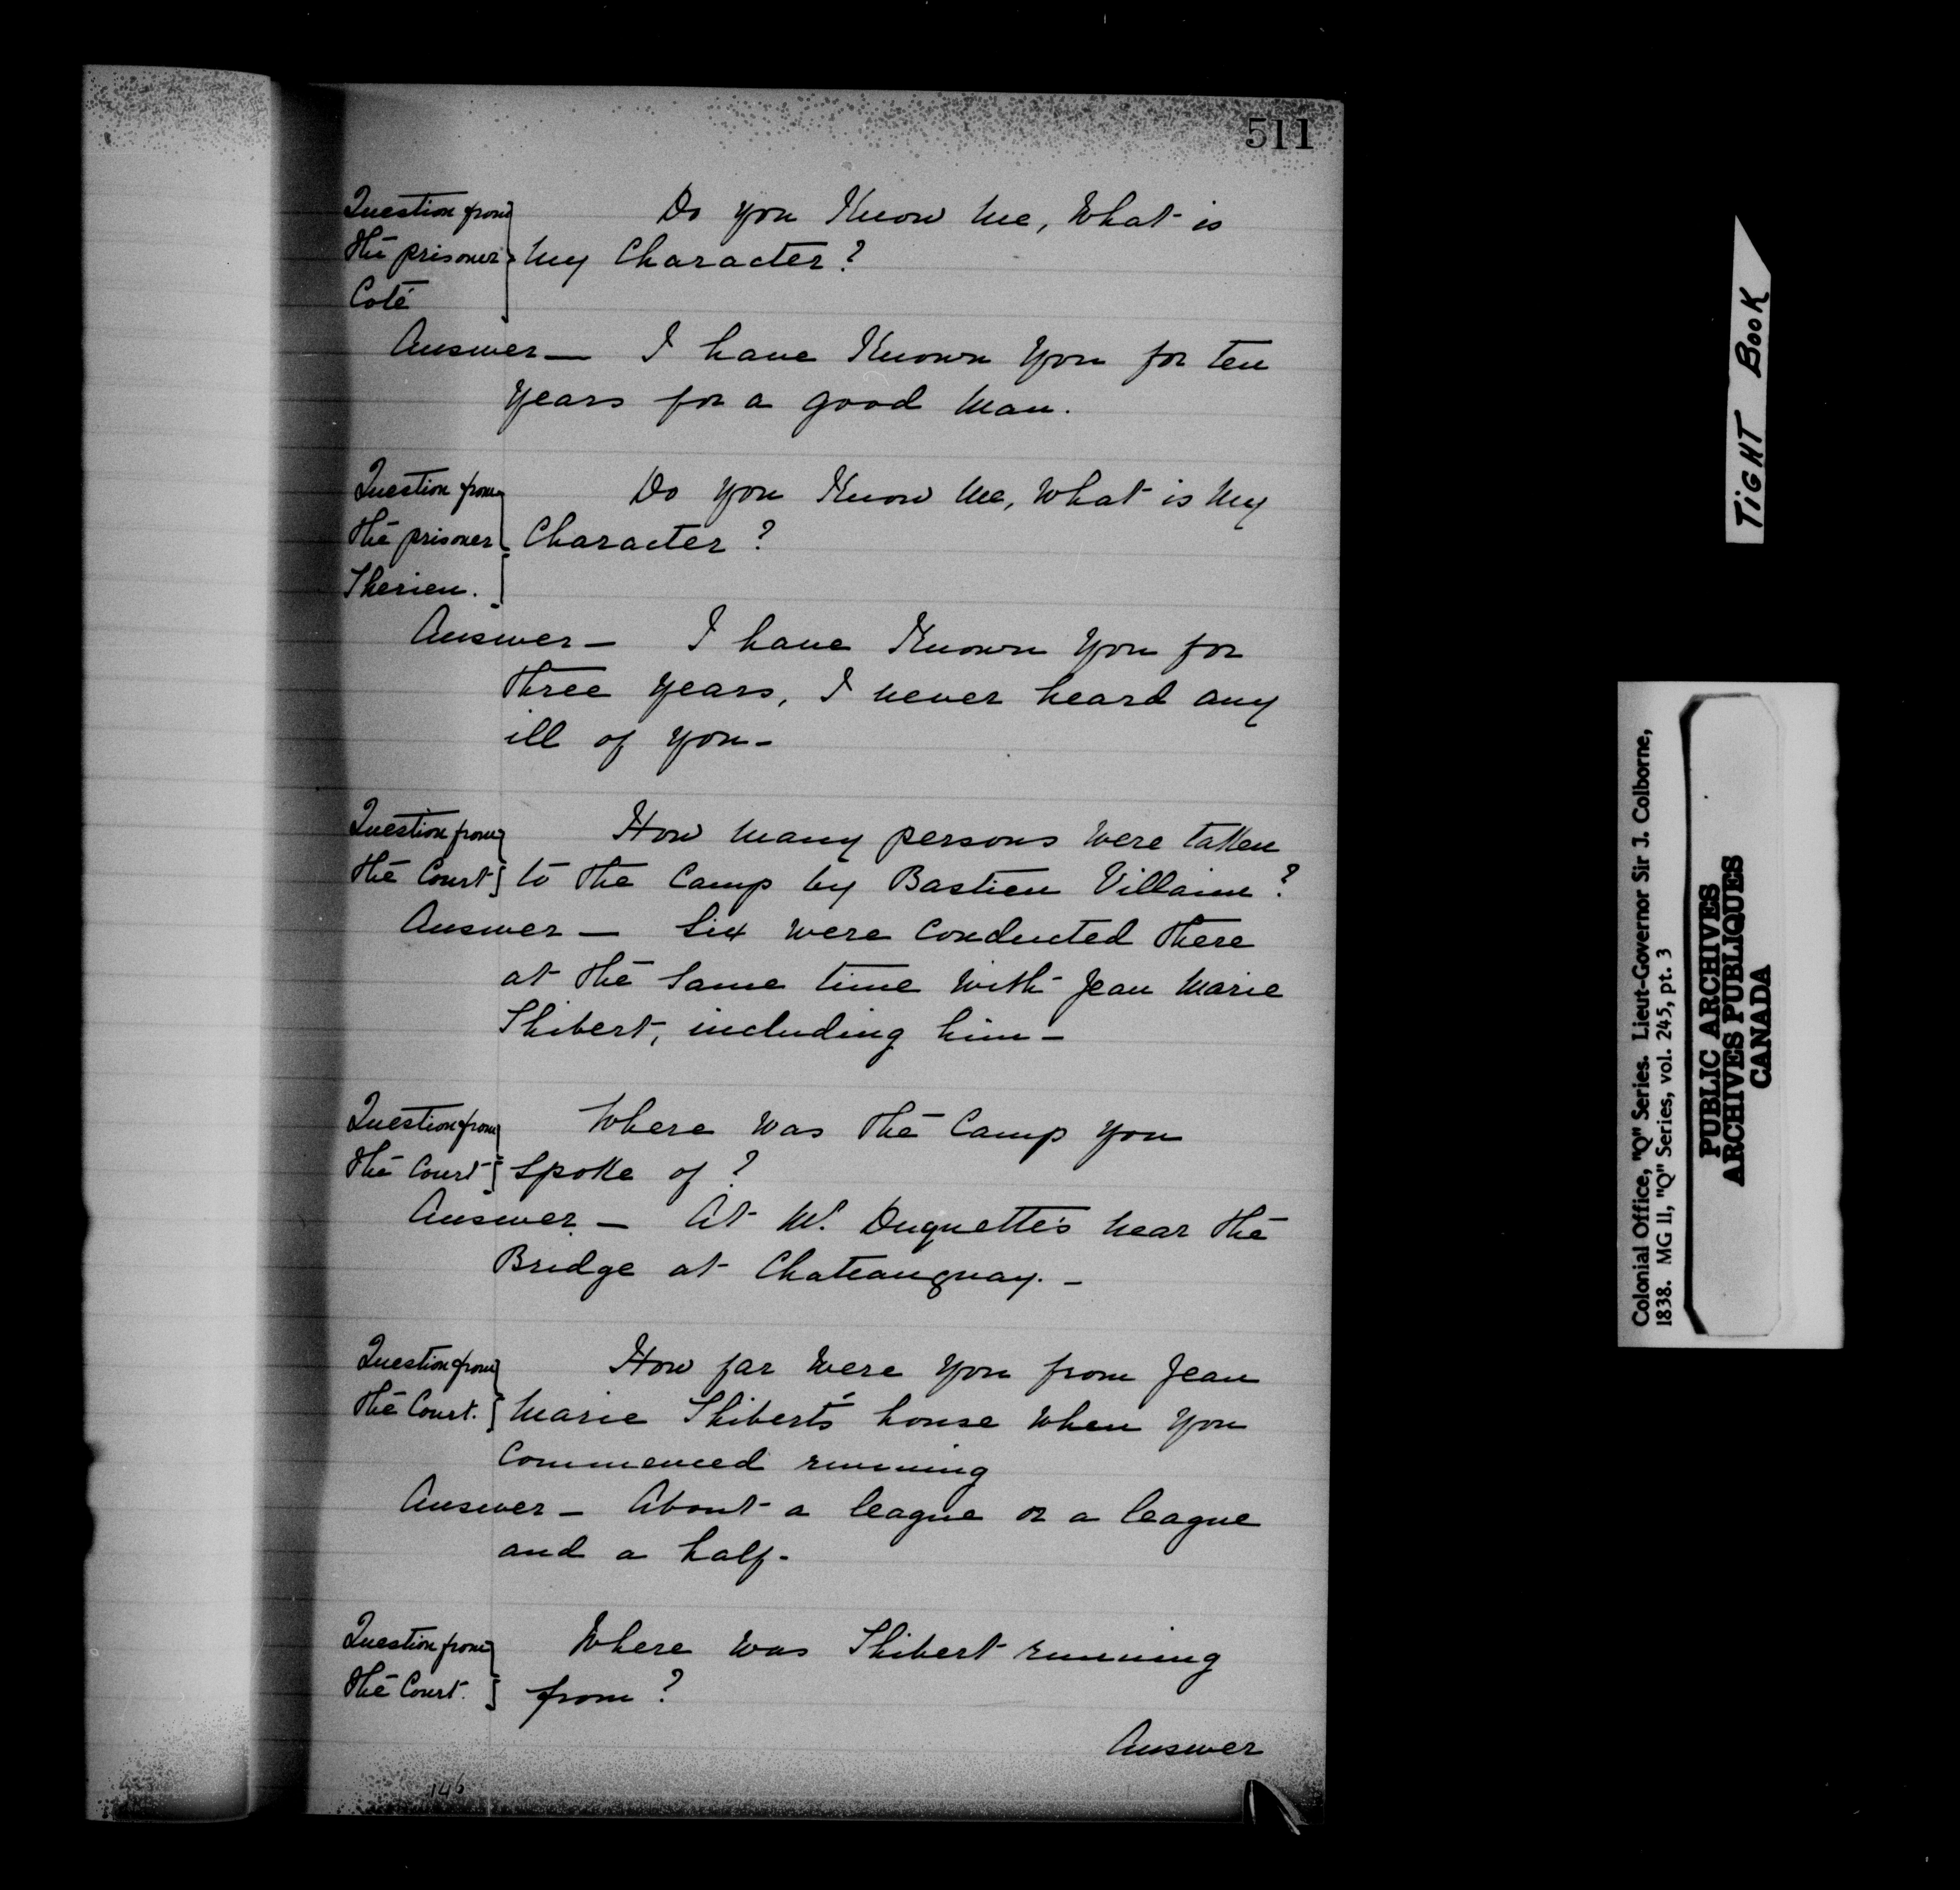 511
Question from Do you Know me, What is
the prisoner my Character?
Coté
Answer — I have Known You for ten
Years for a good Man.
Question from Do you Know me, What is My
the prisoner Character?
Therien.
Answer — I have Known You for
three Years, I never heard any
ill of You —
Question from How Many persons Were taken
the Court to the Camp by Bastien Villaim?
Answer — Six Were Conducted there
at the Same time With Jean Marie
Thibert, including him —
Question from Where Was the Camp You
the Court Spoke of?
Answer — At Mr. Duquette's Near the
Bridge at Chateauguay. —
Question from How far Were You from Jean
the Court. Marie Thibert's house When You
Commenced running
Answer — About a league or a league
and a half.
Question from Where Was Thibert running
the Court. from?
Answer
146
TIGHT BOOK
Colonial Office, "Q" Series. Lieut-Governor Sir J. Colborne,
1838. MG 11, "Q" Series, vol. 245, pt. 3
PUBLIC ARCHIVES
ARCHIVES PUBLIQUES
CANADA